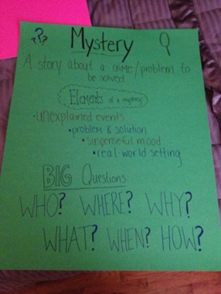 ??? Mystery
A story about a crime/problem to
be solved
Elements of a mystery
• unexplained events
• problem & solution
• suspenseful mood
• real world setting
BIG Questions
WHO? WHERE? WHY?
WHAT? WHEN? HOW?